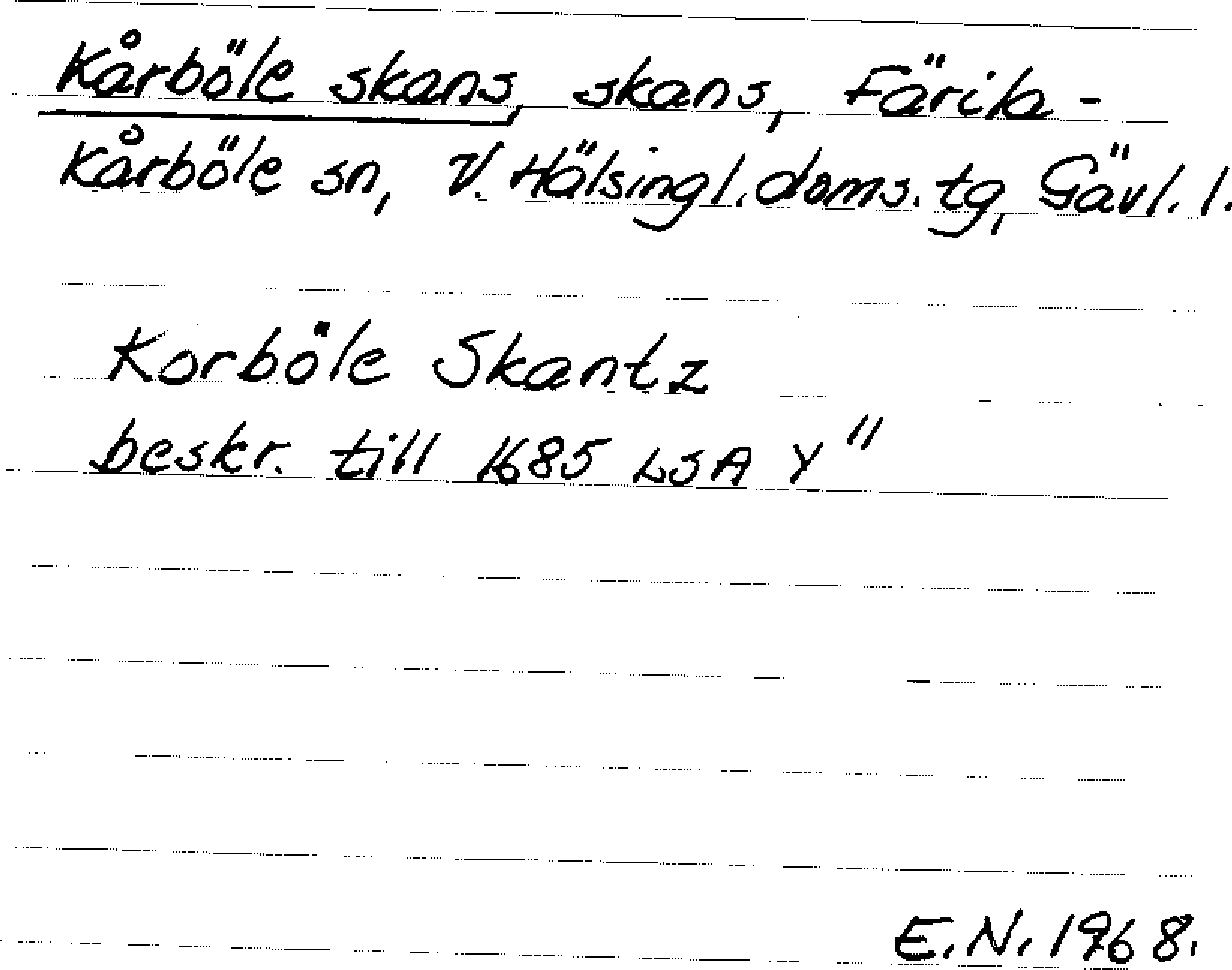 Kårböle skans, skans, Färila-
Kårböle sn, V. Hälsingl. doms. tg, Gävl. l.
Korböle Skantz
beskr. till 1685 LSA Y"
E.N. 1968.